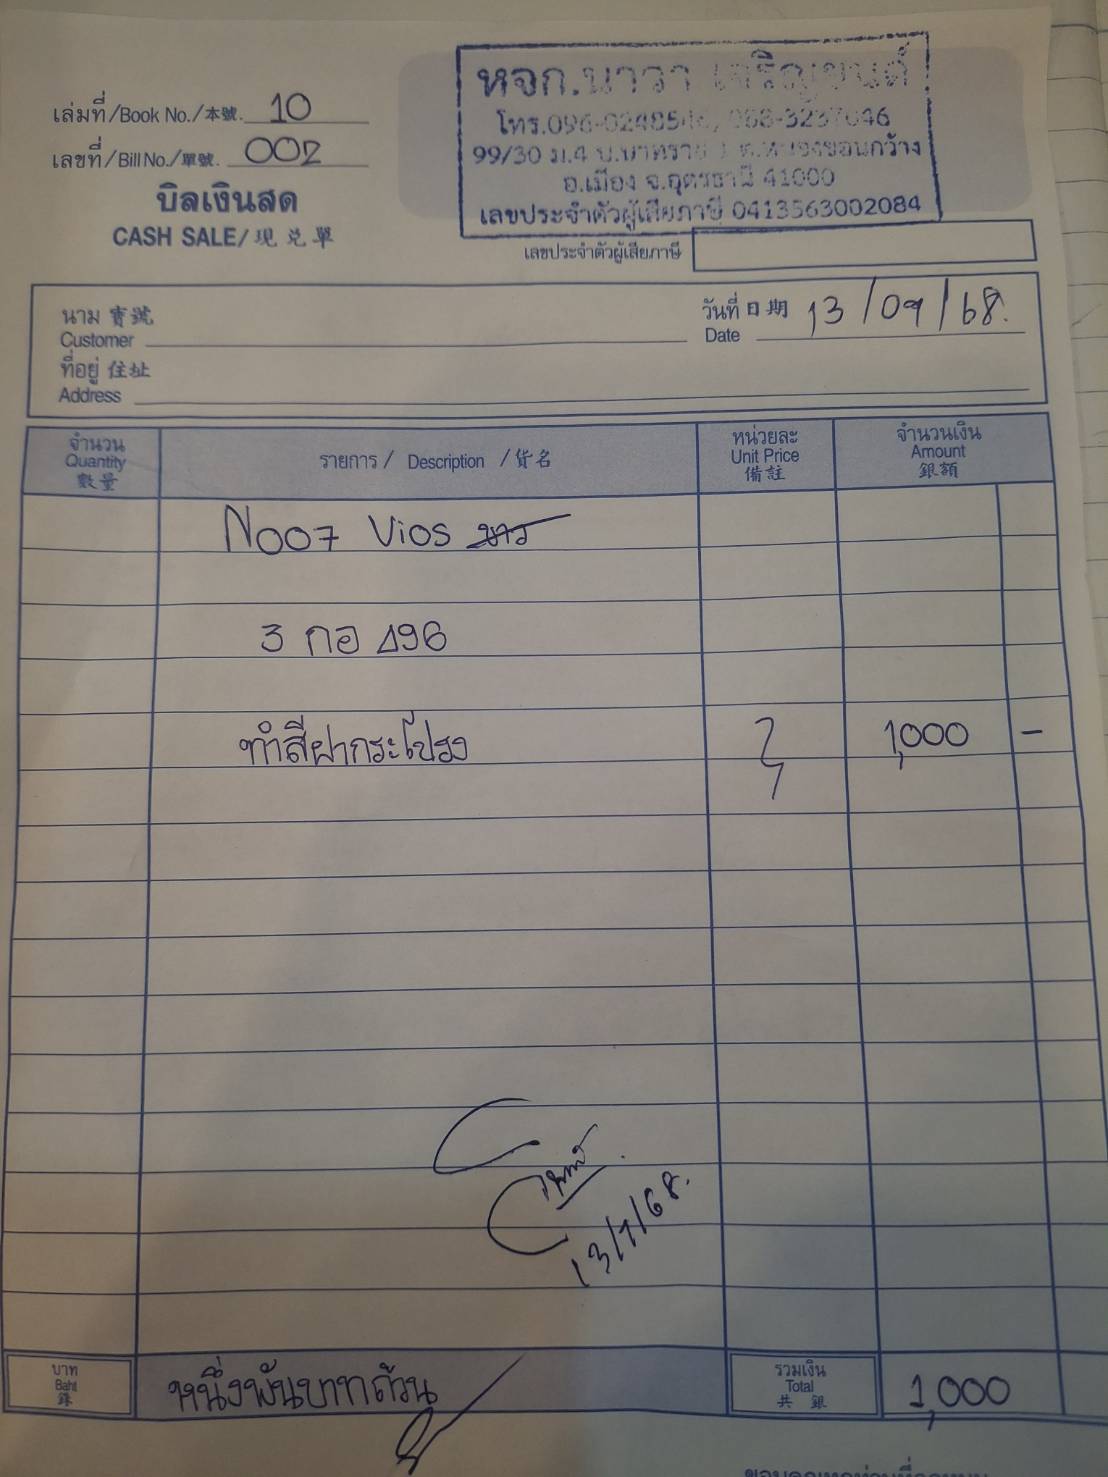 เล่มที่/Book No./本號. 10
เลขที่/Bill No./單號. 002
บิลเงินสด
CASH SALE/現兑單
หจก.นาวา เจริญยนต์
โทร.096-02485
99/30 ม.4
อ.เมือง จ.อุดรธานี 41000
เลขประจำตัวผู้เสียภาษี 0413563002084
เลขประจำตัวผู้เสียภาษี
นาม 寶號
Customer
วันที่ 日期 13/09/68.
Date
ที่อยู่ 住址
Address
จำนวน
Quantity
數量
รายการ / Description / 貨名
หน่วยละ
Unit Price
備註
จำนวนเงิน
Amount
銀額
N007 Vios ขาว
3 กอ 496
ทำสีฝากระโปรง 1,000 -
13/9/68.
บาท
Baht
銖
หนึ่งพันบาทถ้วน
รวมเงิน
Total
共銀
1,000